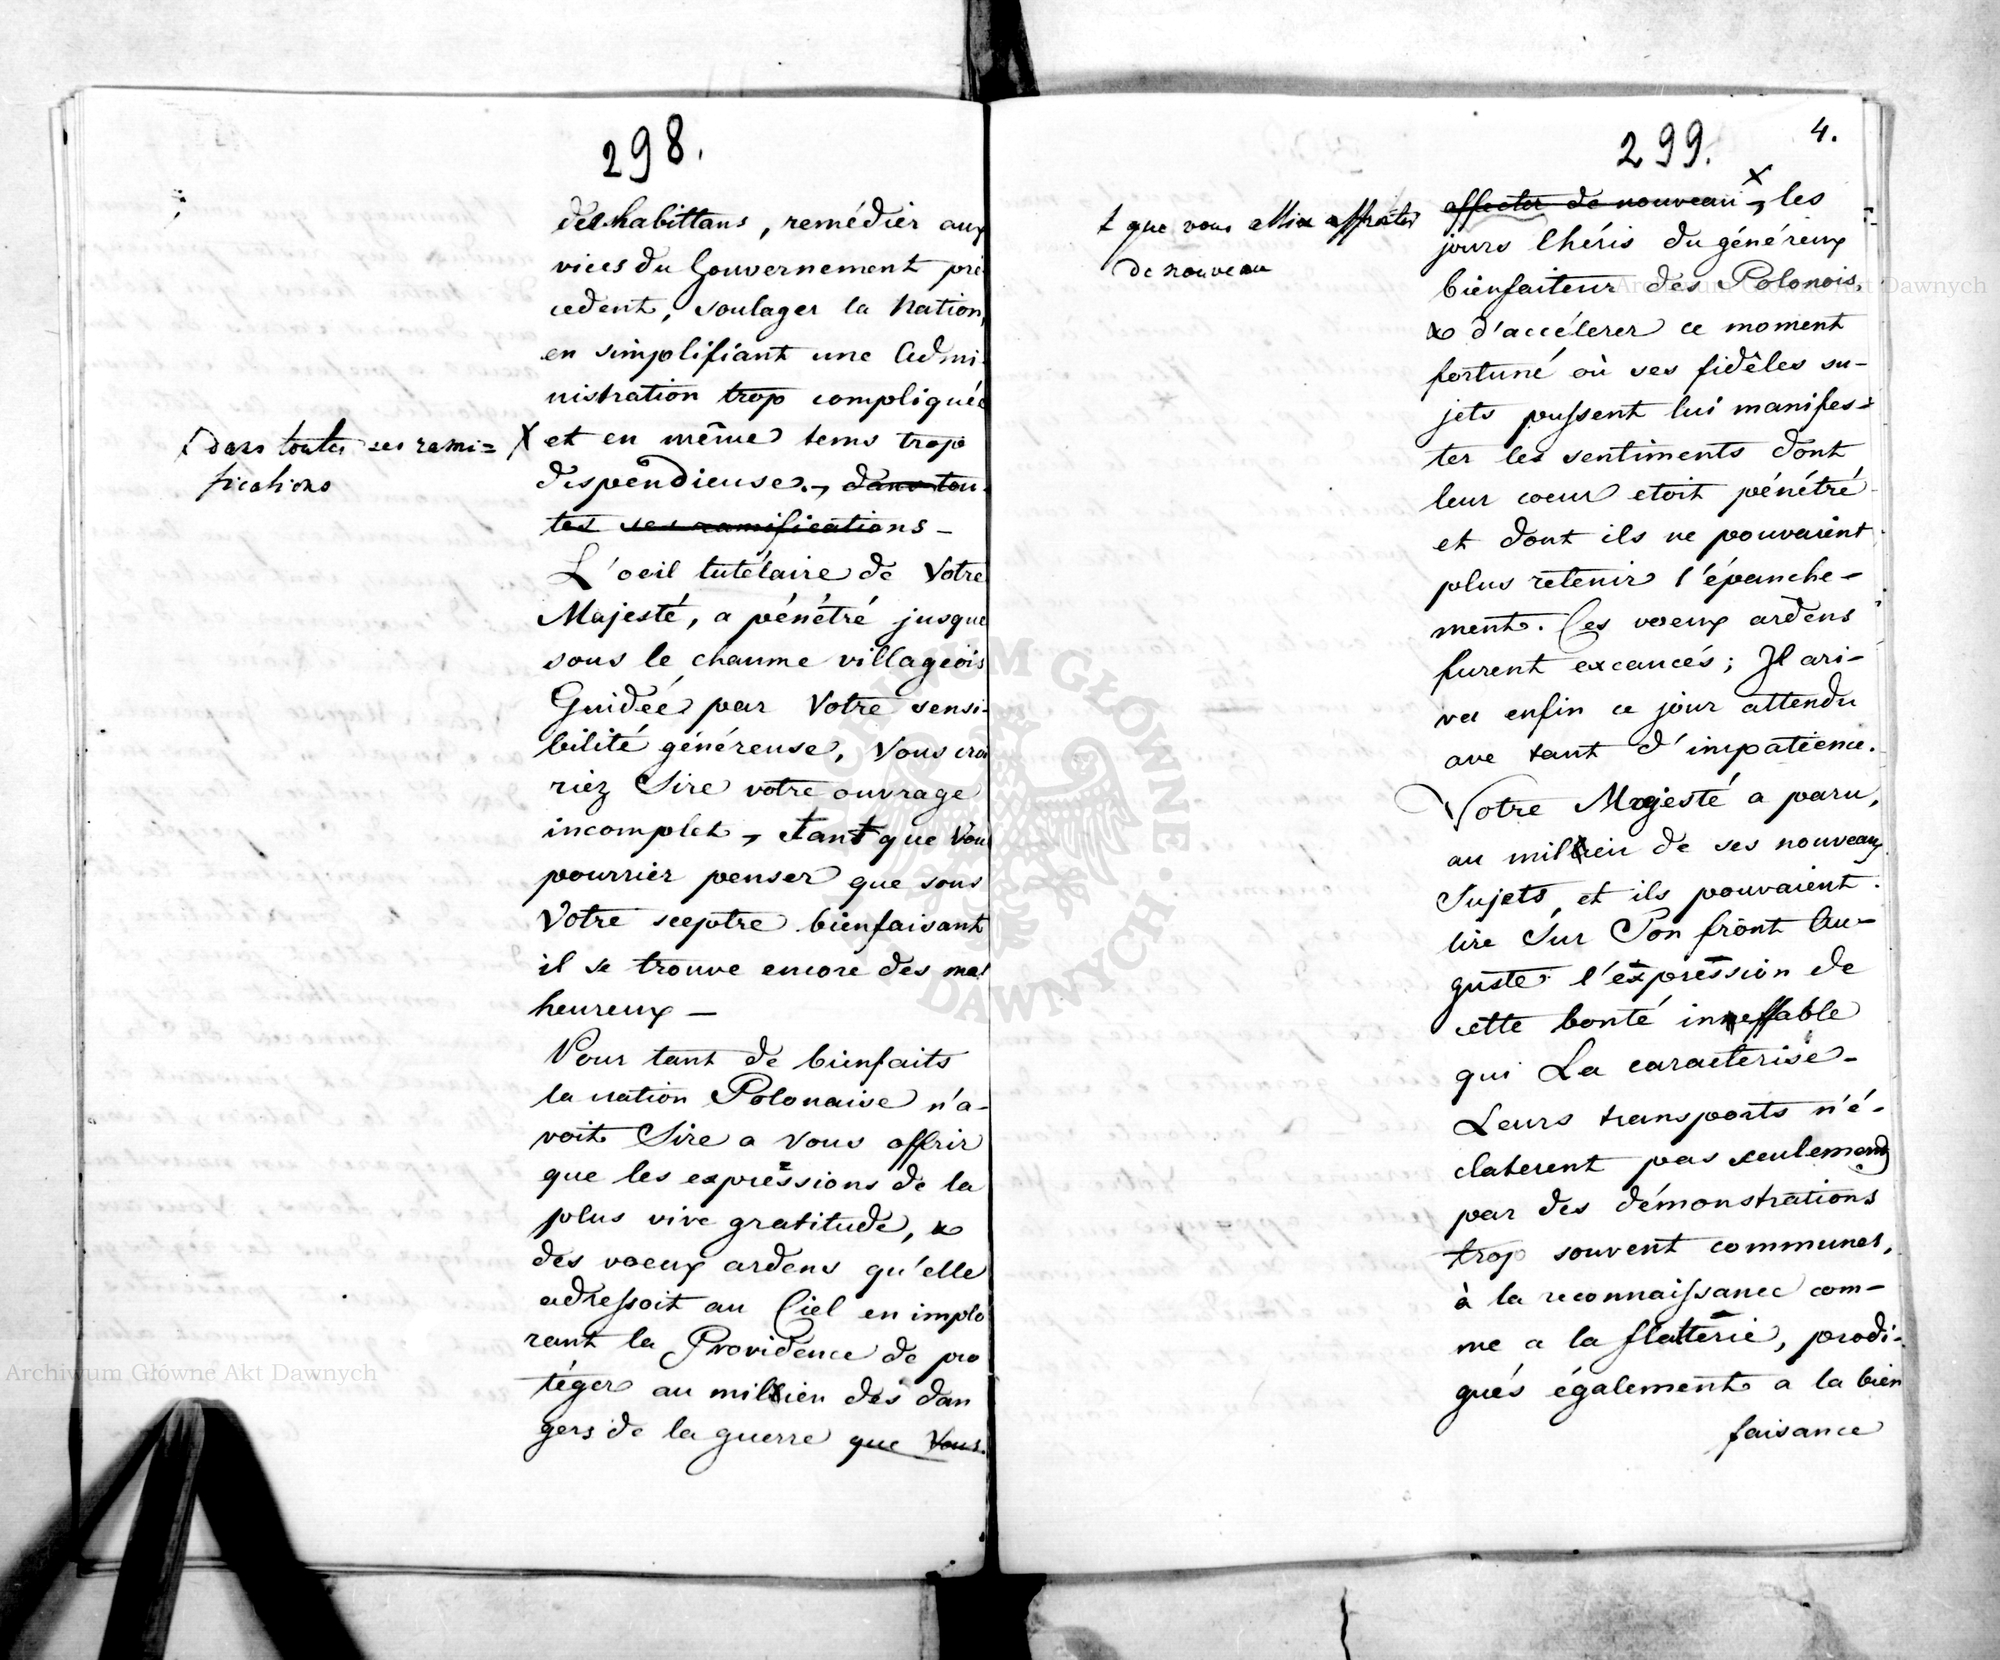 298.
des habittans, remédier aux
vices du Gouvernement pré
cedent, soulager la Nation,
en simplifiant une Admi-
nistration trop compliquée
X et en même tems trop
dispendieuse., dans tou-
tes ses ramifications -
dans toutes ses rami=
fications
L'oeil tutélaire de Votre
Majesté, a pénétré jusque
sous le chaume villageois
Guidée par Votre sensi-
bilité généreuse, Vous croi
riez Sire votre ouvrage
incomplet, tant que Vous
pourriez penser que sous
Votre sceptre bienfaisant
il se trouve encore des mal
heureux -
Pour tant de bienfaits
la nation Polonaise n'a-
voit Sire a Vous offrir
que les expressions de la
plus vive gratitude, &
des voeux ardens qu'elle
adressoit au Ciel en implo
rant la Providence de pro
téger au millieu des dan
gers de la guerre que Vous
299.
4.
affecter de nouveau X, les
que vous alliez affronter
de nouveau
jours chéris du généreux
bienfaiteur des Polonois,
& d'accélerer ce moment
fortuné où ses fidêles su-
jets pussent lui manifes-
ter les sentiments dont
leur coeur etoit pénétré
et dont ils ne pouvaient
plus retenir l'épanche-
ment. Ces voeux ardens
furent exaucés; Il ari-
va enfin ce jour attendu
ave tant d'impatience.
Votre Majesté a paru,
au millieu de ses nouveaux
Sujets, et ils pouvaient
lire Sur Son front Au-
guste l'expression de
cette bonté inneffable
qui La caracterise -
Leurs transports n'é-
claterent pas seulement
par des démonstrations
trop souvent communes,
à la reconnaissance com-
me a la flatterie, prodi-
gués également a la bien
faisance
Archiwum Główne Akt Dawnych
Archiwum Główne Akt Dawnych
ARCHIWUM GŁÓWNE AKT DAWNYCH